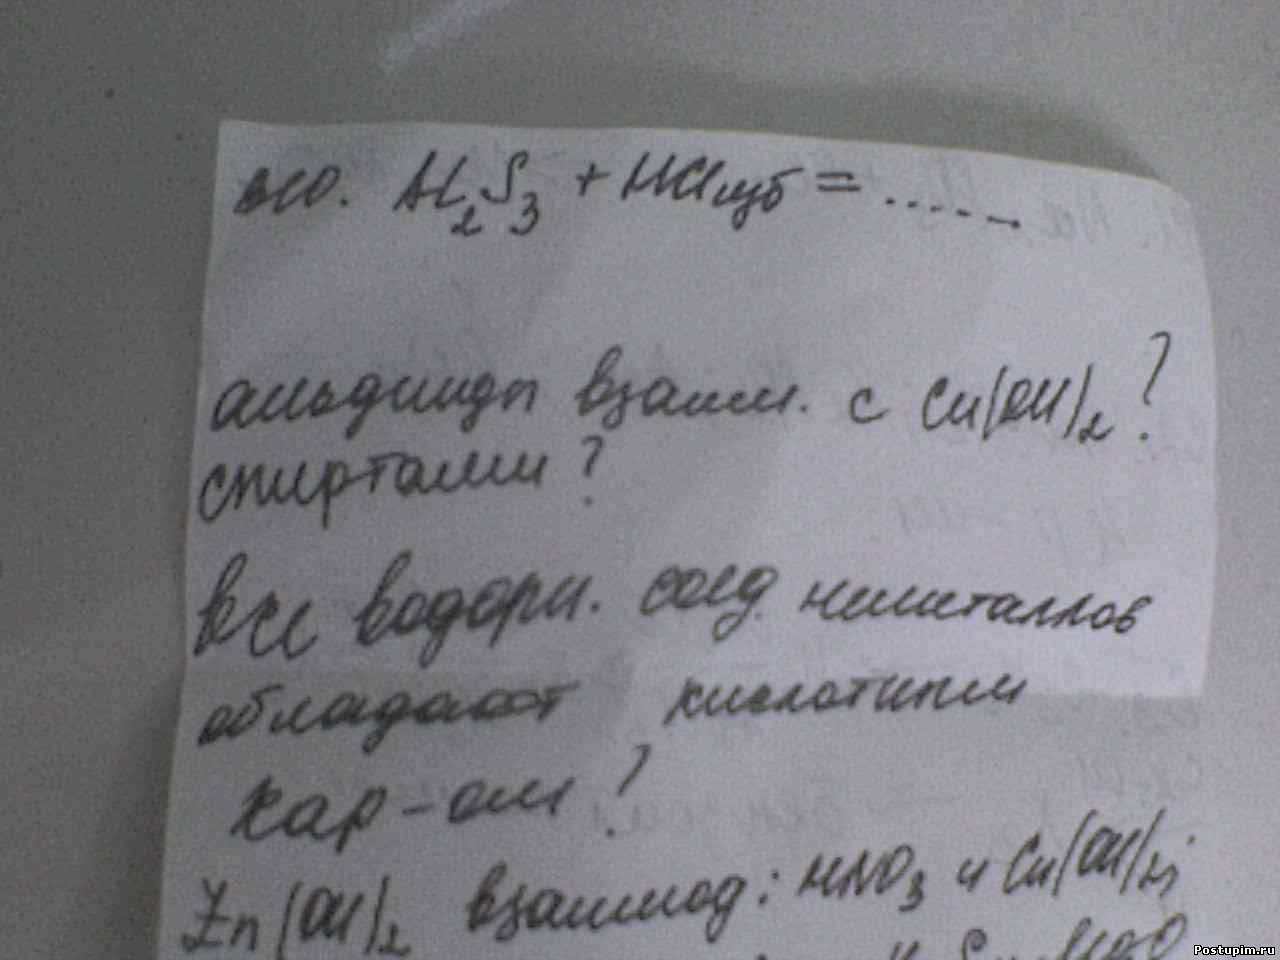 Al2S3 + HCl изб = ......
альдигиды взаим. с Cu(OH)2?
спиртами?
все водорн. соед. неметаллов
обладают кислотным
хар-ом?
Zn(OH)2 взаимод: HNO3 и Cu(OH)2;
Postupim.ru